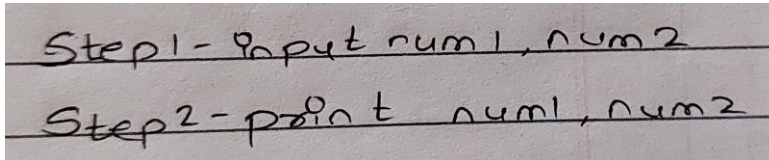 Step1 - input num1, num2
Step2 - print num1, num2